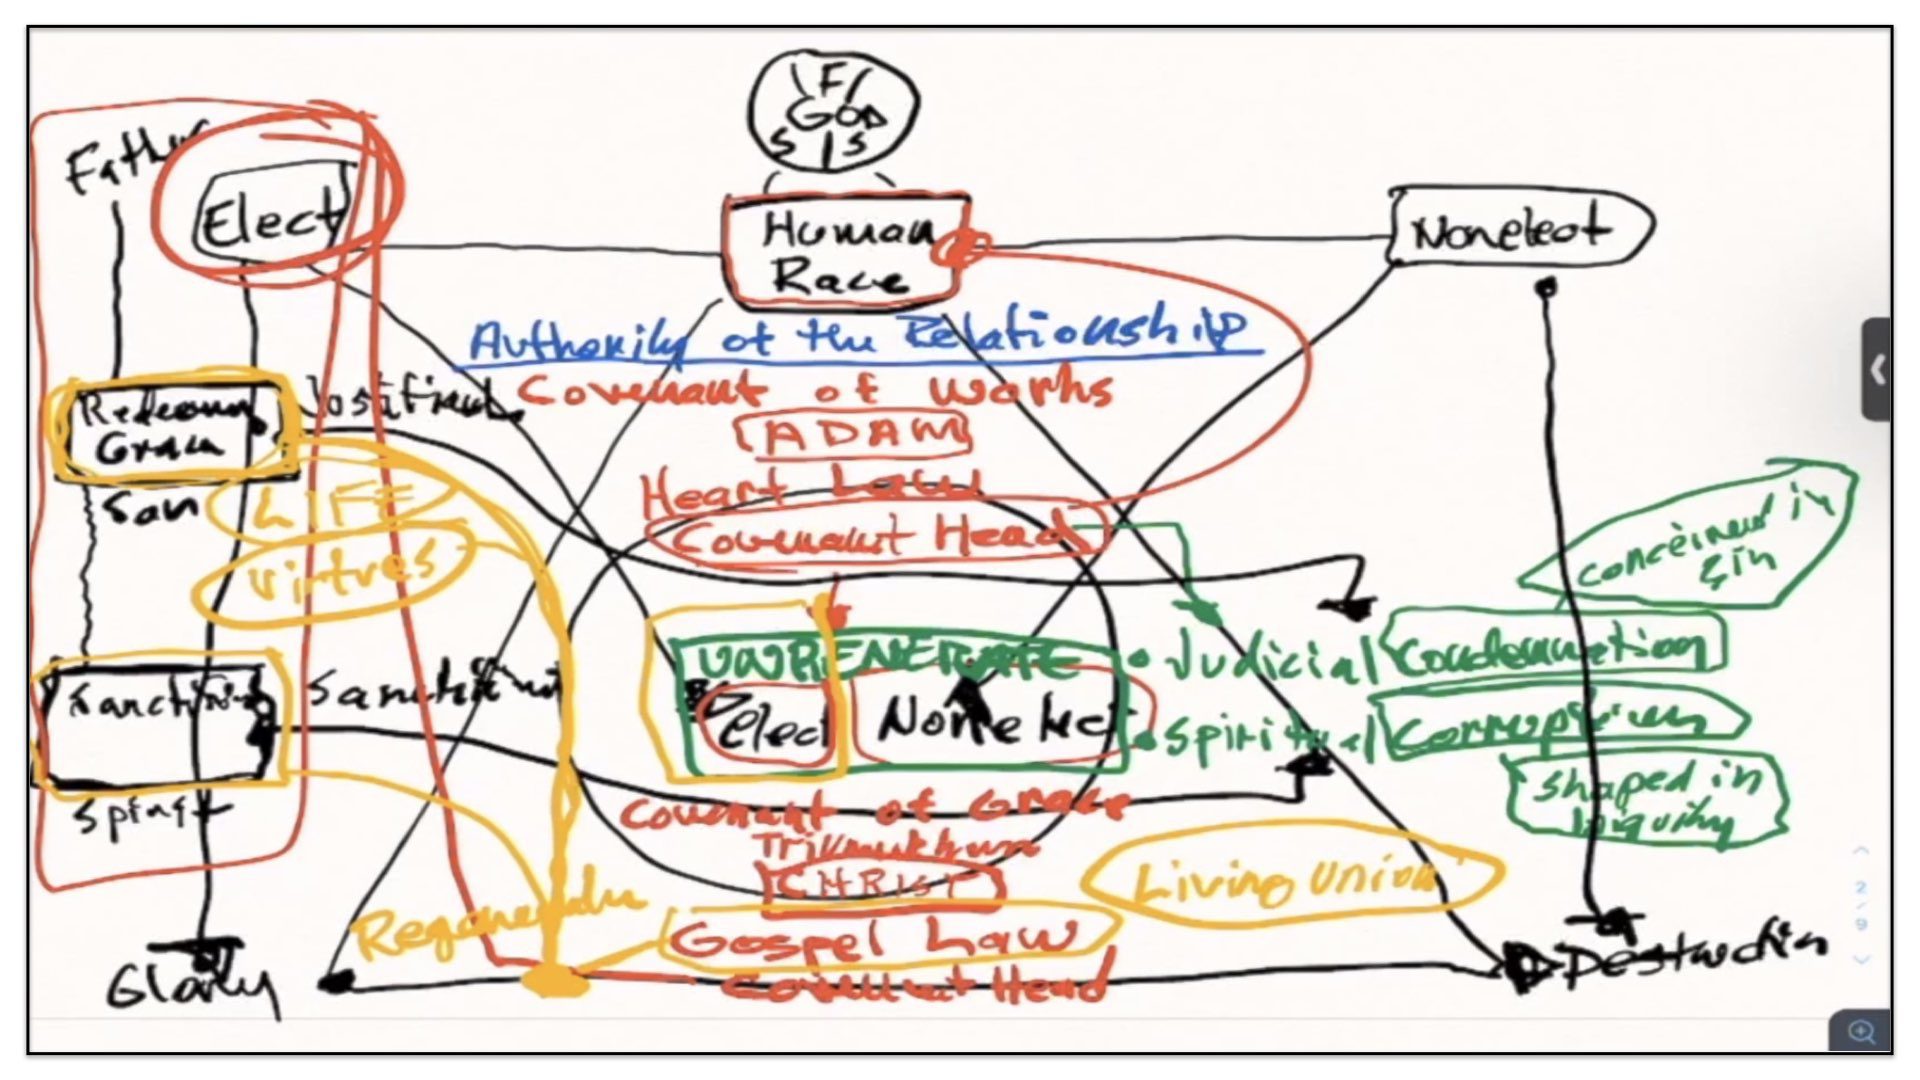 F
GOD
S S
Father
Elect
Human
Race
Nonelect
Authority of the Relationship
Covenant of Works
ADAM
Grace
Son
Heart Law
Covenant Head
LIFE
Virtues
conceived in
sin
UNREGENERATE
Elect
Nonelect
Judicial Condemnation
Spiritual Corruption
shaped in
iniquity
Spirit
Covenant of Grace
CHRIST
Living Union
Gospel Law
Covenant Head
Glory
Destruction
2/9